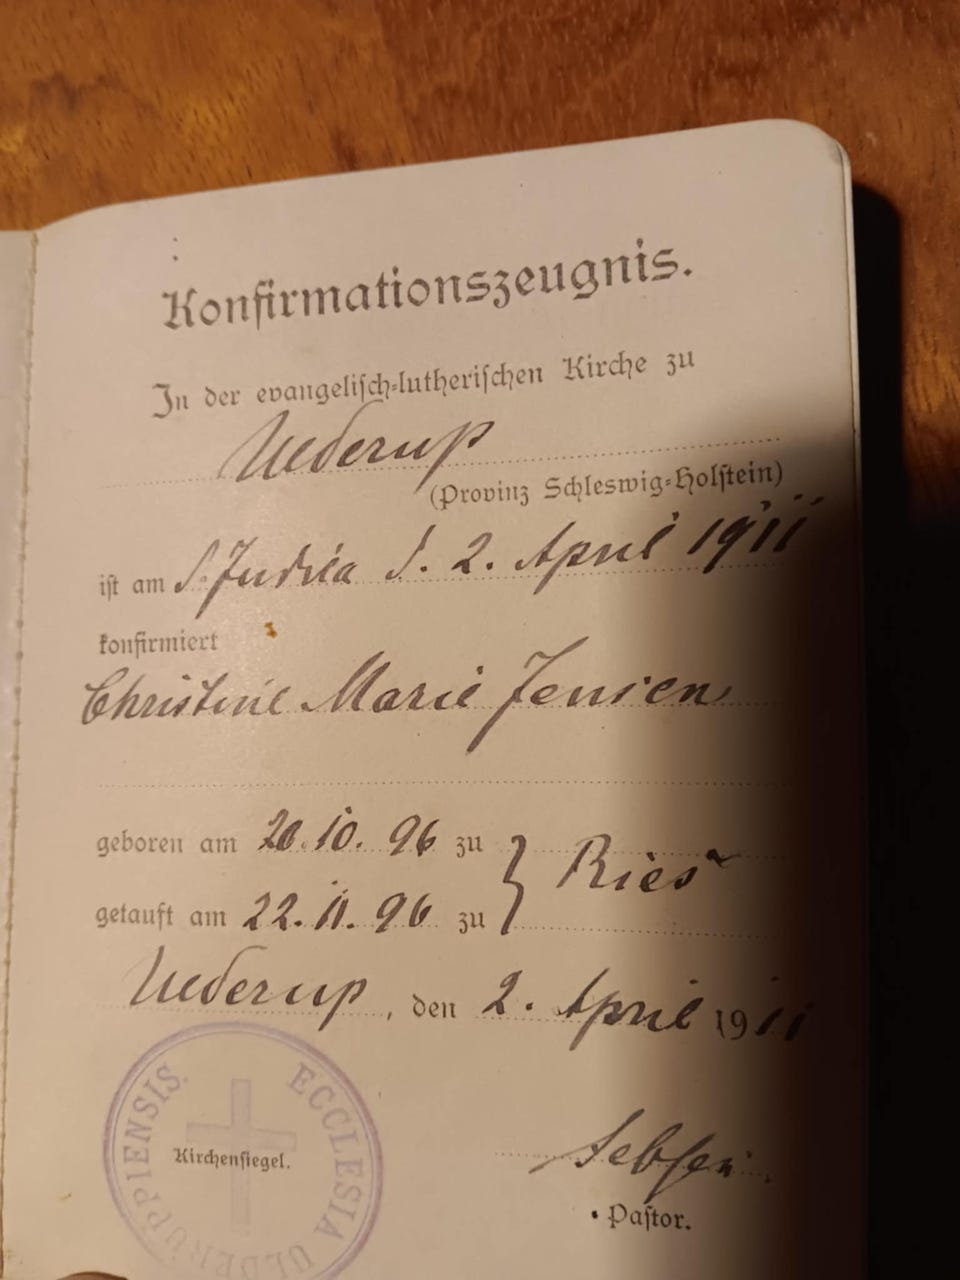 Konfirmationszeugnis.
In der evangelisch-lutherischen Kirche zu
Ulderup
(Provinz Schleswig-Holstein)
ist am S. Judica d. 2. April 1911
konfirmiert
Christine Marie Jensen
geboren am 20.10.96 zu
getauft am 22.11.96 zu } Ries
Ulderup, den 2. April 1911
ECCLESIA ULDERUPPIENSIS.
Kirchensiegel.
Pastor.